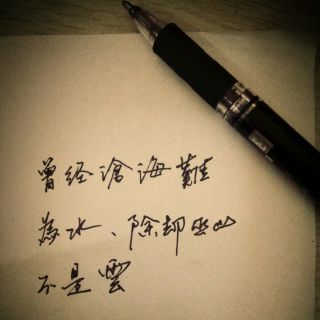 曾经滄海難
為水、除却巫山
不是雲